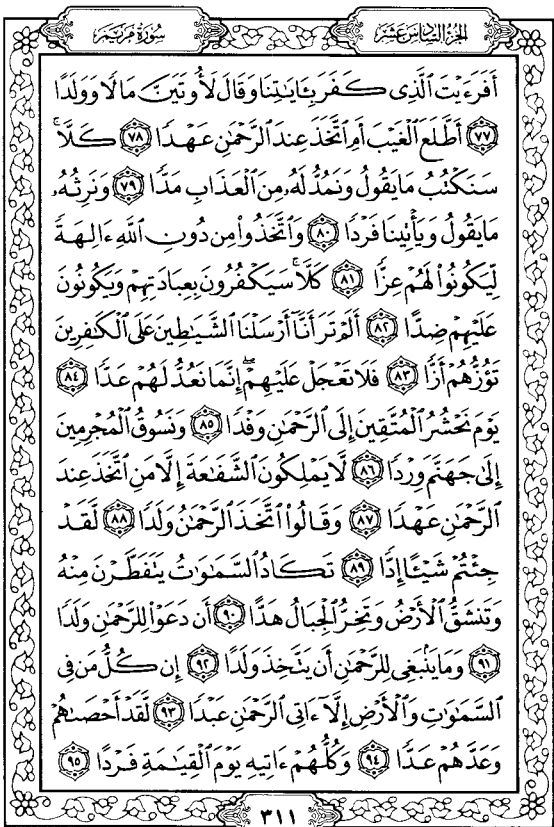 سُورَةُ مَرْيَمَ
الجُزْءُ السَّادِسَ عَشَرَ
أَفَرَءَيْتَ ٱلَّذِى كَفَرَ بِـَٔايَٰتِنَا وَقَالَ لَأُوتَيَنَّ مَالًا وَوَلَدًا
﴿٧٧﴾ أَطَّلَعَ ٱلْغَيْبَ أَمِ ٱتَّخَذَ عِندَ ٱلرَّحْمَٰنِ عَهْدًا ﴿٧٨﴾ كَلَّاۚ
سَنَكْتُبُ مَا يَقُولُ وَنَمُدُّ لَهُۥ مِنَ ٱلْعَذَابِ مَدًّا ﴿٧٩﴾ وَنَرِثُهُۥ
مَا يَقُولُ وَيَأْتِينَا فَرْدًا ﴿٨٠﴾ وَٱتَّخَذُوا۟ مِن دُونِ ٱللَّهِ ءَالِهَةً
لِّيَكُونُوا۟ لَهُمْ عِزًّا ﴿٨١﴾ كَلَّاۚ سَيَكْفُرُونَ بِعِبَادَتِهِمْ وَيَكُونُونَ
عَلَيْهِمْ ضِدًّا ﴿٨٢﴾ أَلَمْ تَرَ أَنَّآ أَرْسَلْنَا ٱلشَّيَٰطِينَ عَلَى ٱلْكَٰفِرِينَ
تَؤُزُّهُمْ أَزًّا ﴿٨٣﴾ فَلَا تَعْجَلْ عَلَيْهِمْۖ إِنَّمَا نَعُدُّ لَهُمْ عَدًّا ﴿٨٤﴾
يَوْمَ نَحْشُرُ ٱلْمُتَّقِينَ إِلَى ٱلرَّحْمَٰنِ وَفْدًا ﴿٨٥﴾ وَنَسُوقُ ٱلْمُجْرِمِينَ
إِلَىٰ جَهَنَّمَ وِرْدًا ﴿٨٦﴾ لَّا يَمْلِكُونَ ٱلشَّفَٰعَةَ إِلَّا مَنِ ٱتَّخَذَ عِندَ
ٱلرَّحْمَٰنِ عَهْدًا ﴿٨٧﴾ وَقَالُوا۟ ٱتَّخَذَ ٱلرَّحْمَٰنُ وَلَدًا ﴿٨٨﴾ لَّقَدْ
جِئْتُمْ شَيْـًٔا إِدًّا ﴿٨٩﴾ تَكَادُ ٱلسَّمَٰوَٰتُ يَتَفَطَّرْنَ مِنْهُ
وَتَنشَقُّ ٱلْأَرْضُ وَتَخِرُّ ٱلْجِبَالُ هَدًّا ﴿٩٠﴾ أَن دَعَوْا۟ لِلرَّحْمَٰنِ وَلَدًا
﴿٩١﴾ وَمَا يَنۢبَغِى لِلرَّحْمَٰنِ أَن يَتَّخِذَ وَلَدًا ﴿٩٢﴾ إِن كُلُّ مَن فِى
ٱلسَّمَٰوَٰتِ وَٱلْأَرْضِ إِلَّآ ءَاتِى ٱلرَّحْمَٰنِ عَبْدًا ﴿٩٣﴾ لَّقَدْ أَحْصَىٰهُمْ
وَعَدَّهُمْ عَدًّا ﴿٩٤﴾ وَكُلُّهُمْ ءَاتِيهِ يَوْمَ ٱلْقِيَٰمَةِ فَرْدًا ﴿٩٥﴾
٣١١